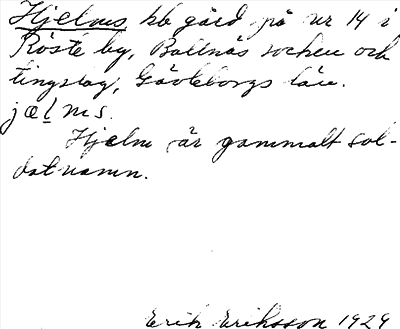 Hjelms bb gård på nr 14 i
Röste by, Bollnäs socken och
tingslag, Gävleborgs län.
jælms.
Hjelm är gammalt sol-
datnamn.
Erik Eriksson 1929